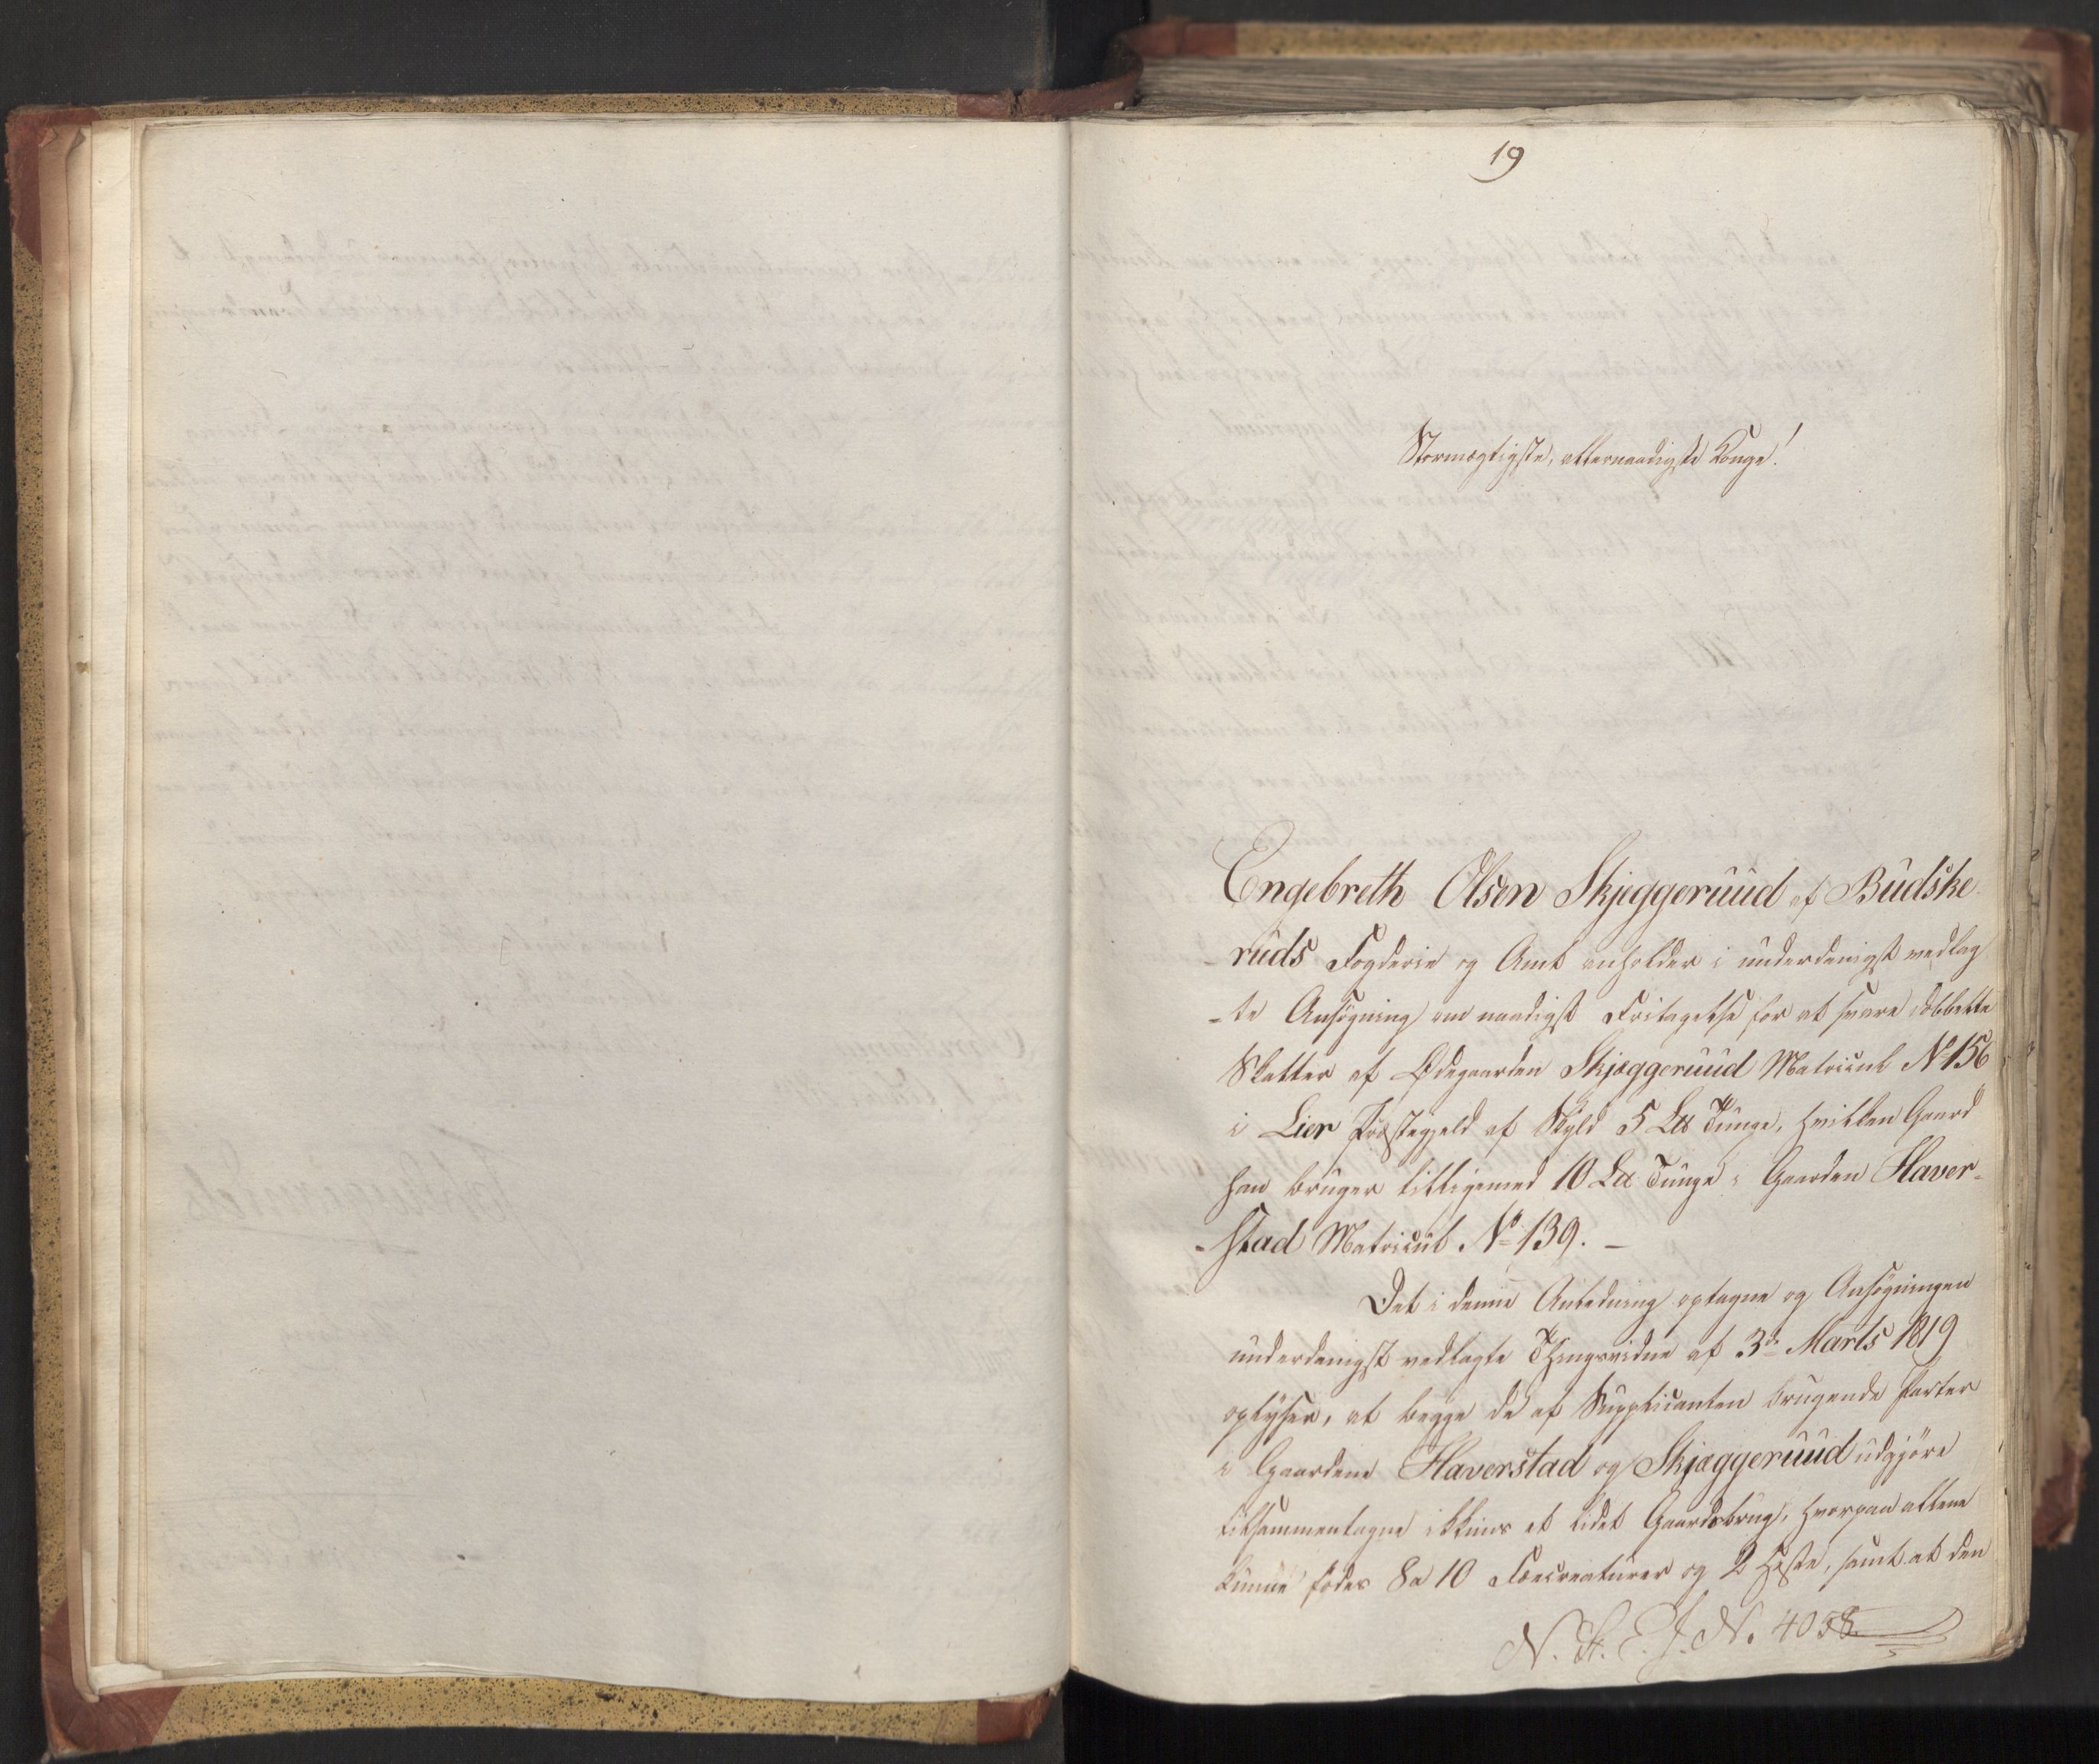 19
Stormægtigste, allernaadigste Konge!
Engebreth Olsen Skjeggeruud af Budske
-ruds Fogderie og Amt anholder i underdanigst vedlag
-te Ansøgning om naadigst Fritagelse for at svare dobbelte
Skatter af Ødegaarden Skjæggeruud Matricul No 156
i Lier Præstegjeld af Skyld 5 L℔ Tunge, hvilken Gaard
han bruger tilligemed 10 L℔ Tunge i Gaarden Haver-
-stad Matricul No 139. -
Det i denne Anledning optagne og Ansøgningen
underdanigst vedlagte Thingsvidne af 3de Marts 1819
oplyser, at begge de af Supplicanten brugende Parter
i Gaardene Haverstad og Skjæggeruud udgjøre
tilsammentagne ikkuns et lidet Gaardsbrug, hvorpaa allene
kunne födes 8 a 10 Fæcreaturer og 2 Heste, samt at den
N. St. E. J. N. 4058